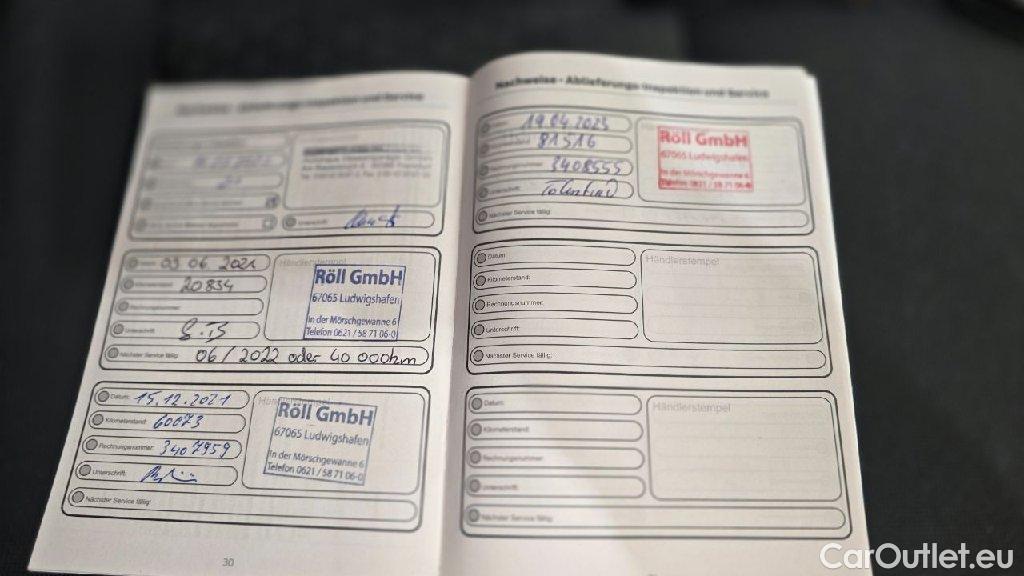 Nachweise - Ablieferungs-Inspektion und Service
Unterschrift:
Datum: 09 06 2021
Kilometerstand: 20834
Rechnungsnummer:
Unterschrift:
Nächster Service fällig: 06/2022 oder 40 000km
Händlerstempel
Röll GmbH
67065 Ludwigshafen
In der Mörschgewanne 6
Telefon 0621 / 58 71 06-0
Datum: 15.12.2021
Kilometerstand: 60073
Rechnungsnummer: 3407959
Unterschrift:
Nächster Service fällig:
Händlerstempel
Röll GmbH
67065 Ludwigshafen
In der Mörschgewanne 6
Telefon 0621 / 58 71 06-0
30
Nachweise - Ablieferungs-Inspektion und Service
19.04.2023
81516
3408555
Unterschrift:
Nächster Service fällig:
Röll GmbH
67065 Ludwigshafen
In der Mörschgewanne 6
Telefon 0621 / 58 71 06-0
Datum:
Kilometerstand:
Rechnungsnummer:
Unterschrift:
Nächster Service fällig:
Händlerstempel
Datum:
Kilometerstand:
Rechnungsnummer:
Unterschrift:
Nächster Service fällig:
Händlerstempel
CarOutlet.eu